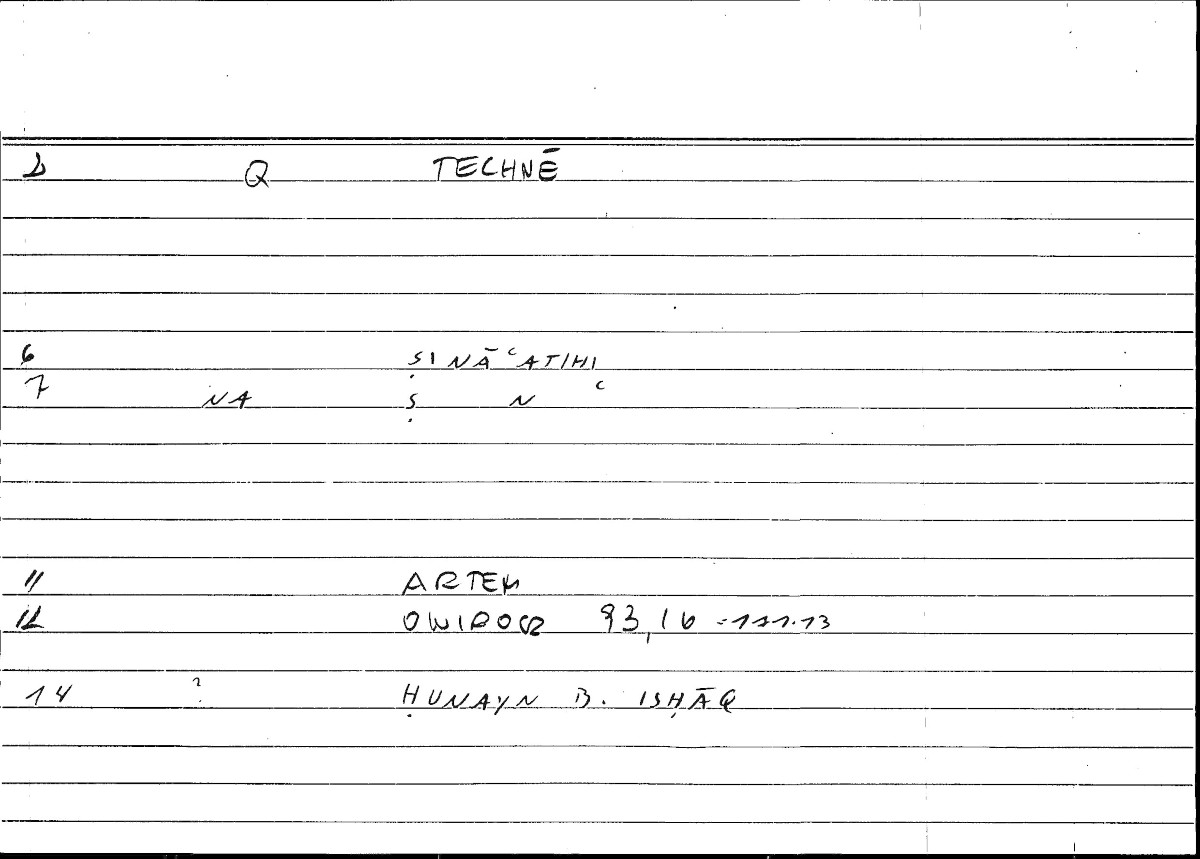 Q TECHNĒ
6 ṢINĀʿATIHI
7 NA Ṣ N ʿ
11 ARTEM
12 ONIROCR 93,16 - 111.13
14 ? ḤUNAYN B. ISḤĀQ